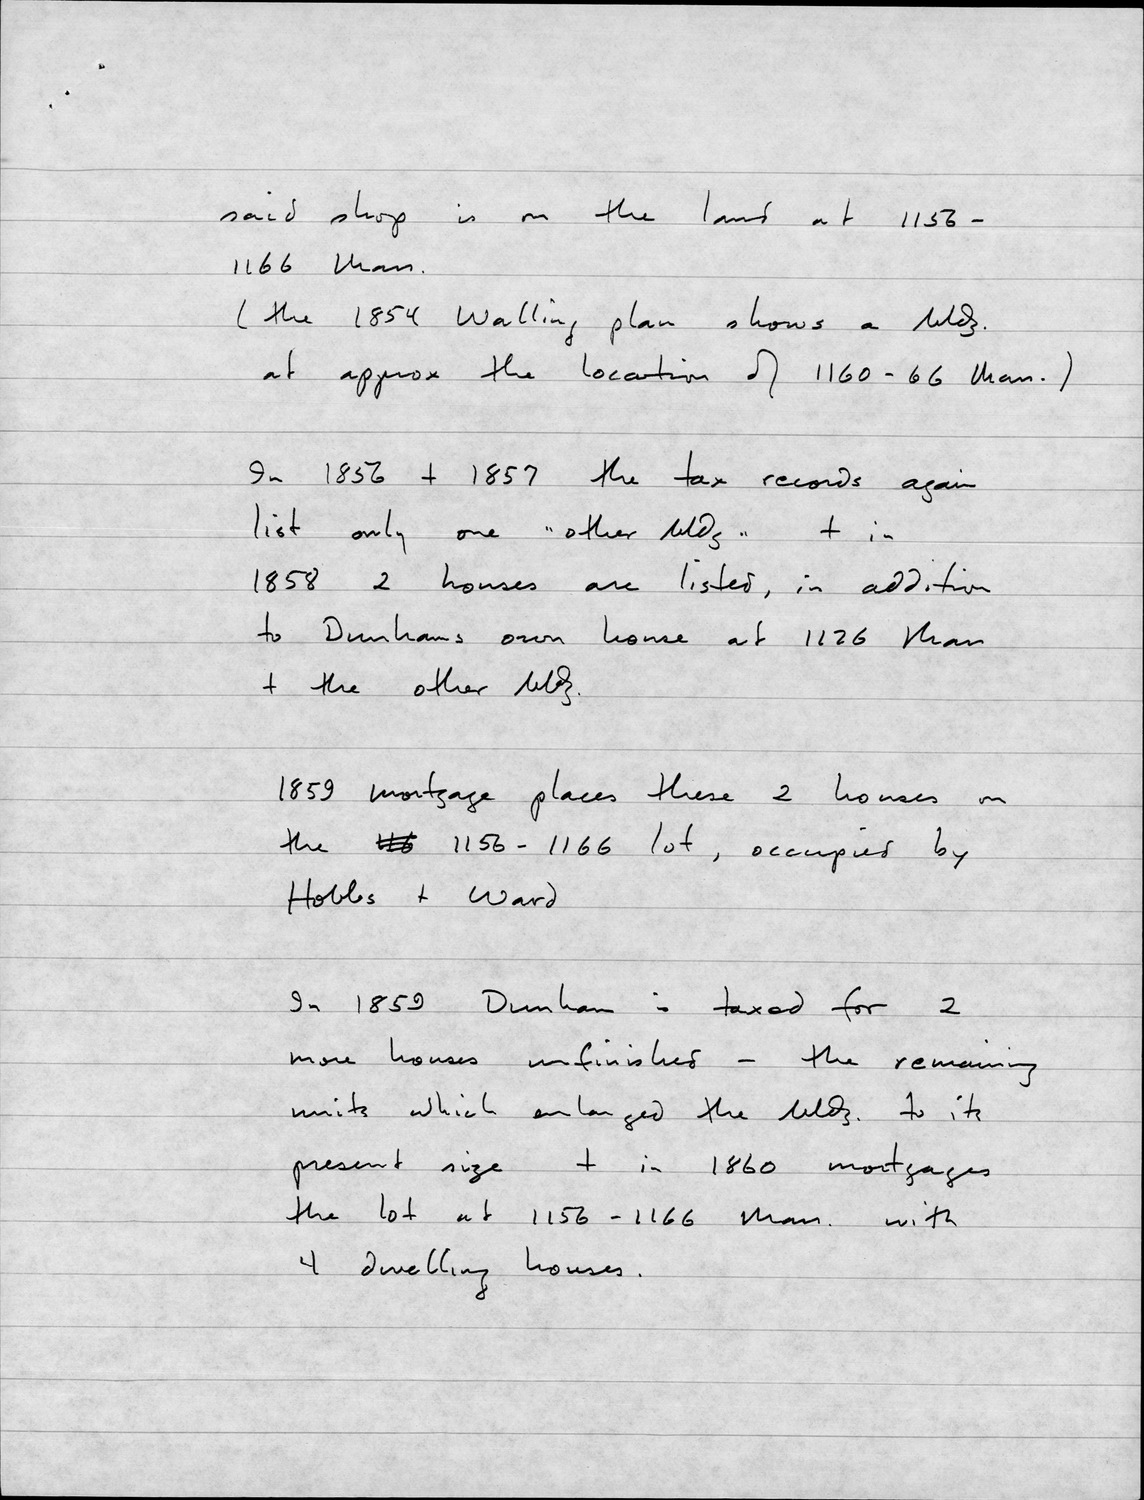 said shop is on the land at 1156-
1166 Mass.
(the 1854 Walling plan shows a bldg.
at approx the location of 1160-66 Mass.)
In 1856 + 1857 the tax records again
list only one "other bldg" + in
1858 2 houses are listed, in addition
to Dunhams own house at 1126 Mass
+ the other bldg.
1859 mortgage places these 2 houses on
the 1156-1166 lot, occupied by
Hobbs + Ward
In 1859 Dunham is taxed for 2
more houses unfinished - the remaining
units which enlarged the bldg. to its
present size + in 1860 mortgages
the lot at 1156-1166 Mass. with
4 dwelling houses.